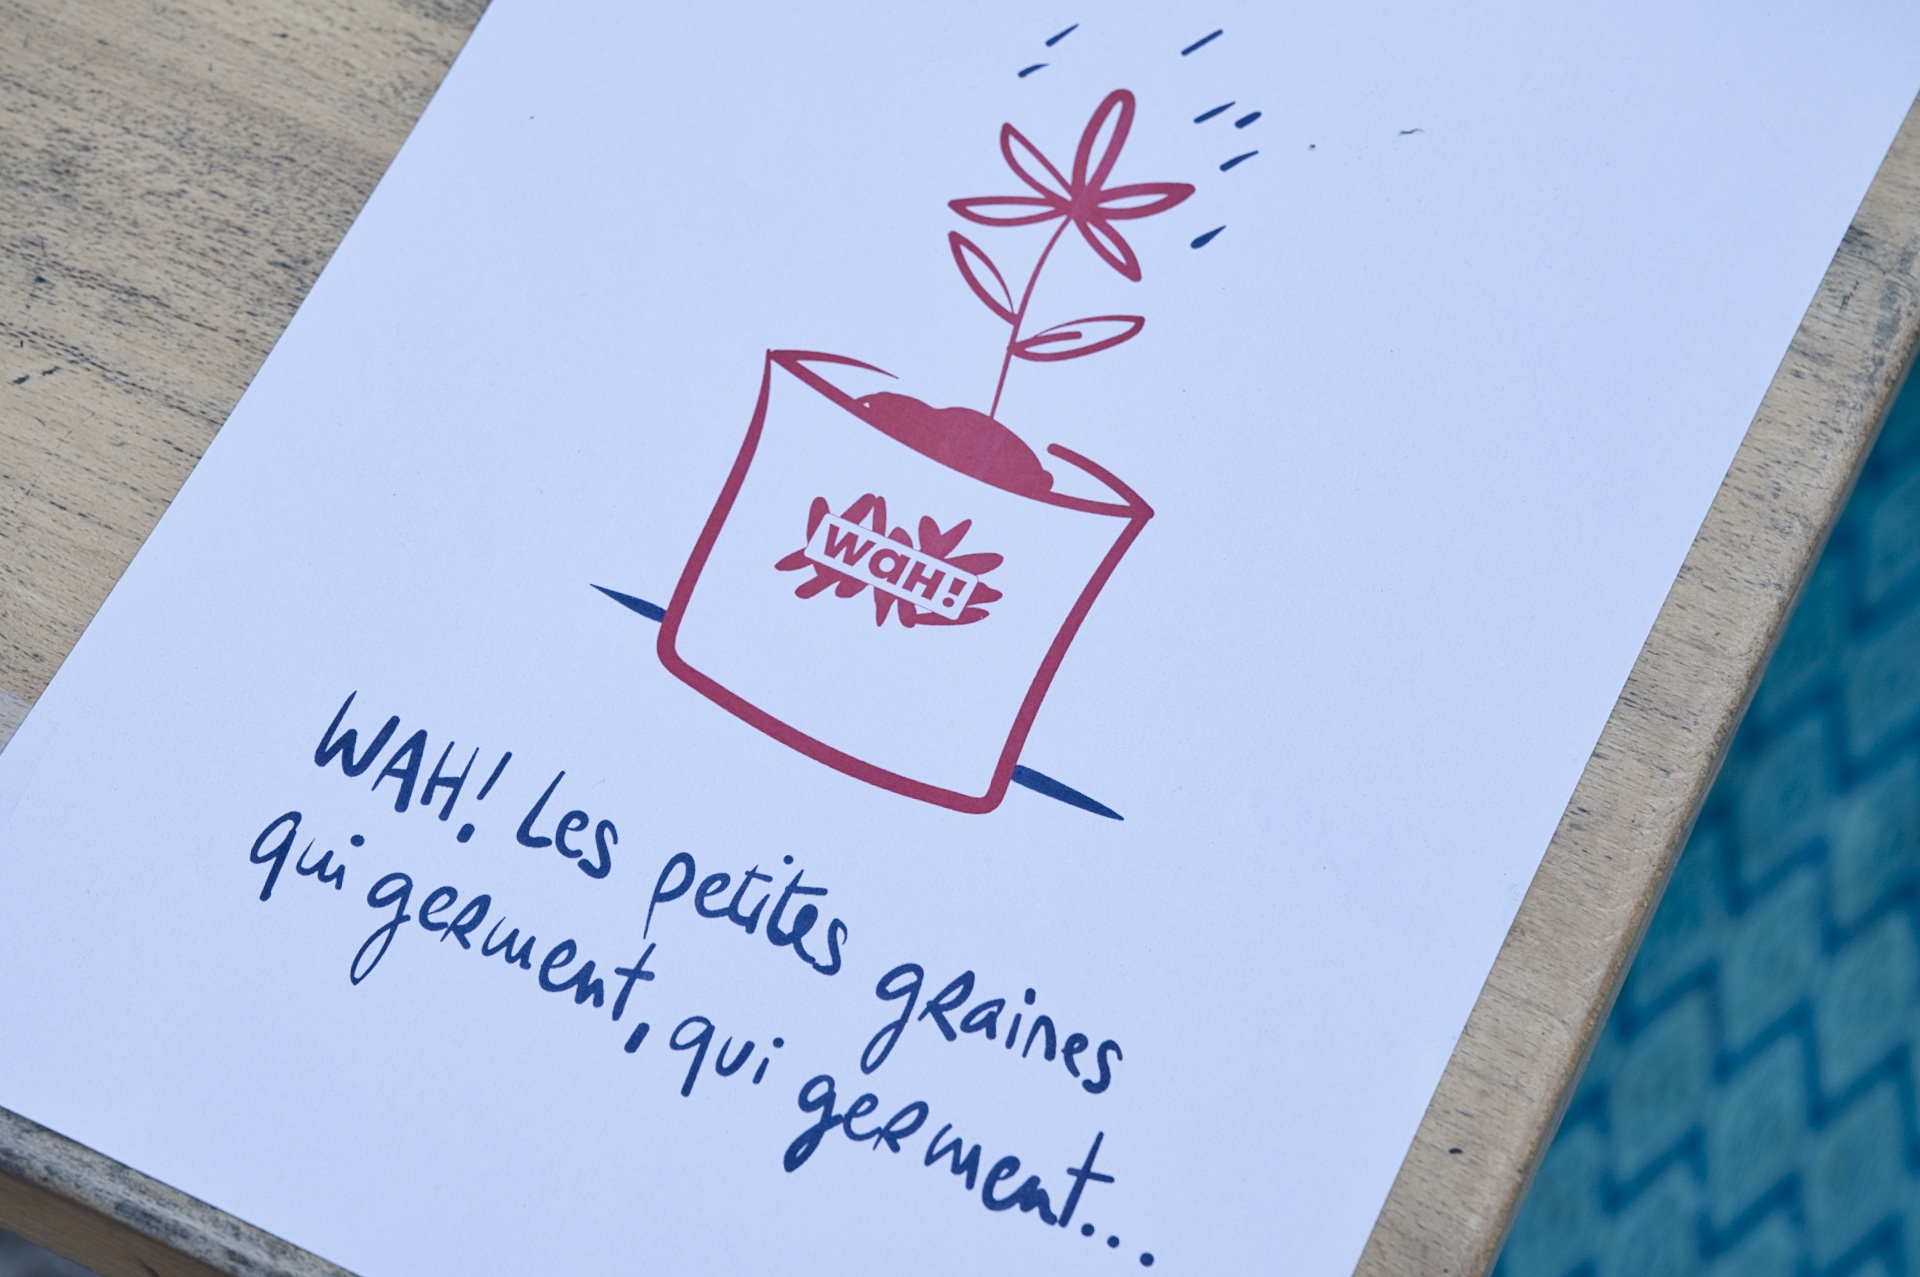 waH!
WAH! Les petites graines
qui germent, qui germent...